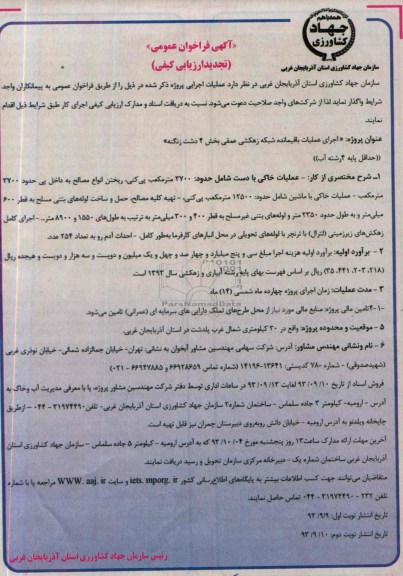 همه با هم
جهاد
کشاورزی
سازمان جهاد کشاورزی استان آذربایجان غربی
«آگهی فراخوان عمومی»
(تجدیدارزیابی کیفی)
سازمان جهاد کشاورزی استان آذربایجان غربی در نظر دارد عملیات اجرایی پروژه ذکر شده در ذیل را از طریق فراخوان عمومی به پیمانکاران واجد
شرایط واگذار نماید لذا از شرکت‌های واجد صلاحیت دعوت می‌شود، نسبت به دریافت اسناد و مدارک ارزیابی کیفی اجرای کار طبق شرایط ذیل اقدام
نمایند.
عنوان پروژه: «اجرای عملیات باقیمانده شبکه زهکشی عمقی بخش ۴ دشت زنگنه»
((حداقل پایه ۴ رشته آب))
۱ـ شرح مختصری از کار: - عملیات خاکی با دست شامل حدود: ۲۷۰۰ مترمکعب پی‌کنی، ریختن انواع مصالح به داخل پی حدود ۲۷۰۰
مترمکعب - عملیات خاکی با ماشین شامل حدود: ۱۲۵۰۰ مترمکعب پی‌کنی - تهیه کلیه مصالح، حمل و ساخت لوله‌های بتنی مسلح به قطر ۶۰۰
میلی‌متر و به طول حدود ۲۳۵۰ متر و لوله‌های بتنی غیرمسلح به قطر ۴۰۰ و ۳۰۰ میلی‌متر به ترتیب به طول‌های ۱۵۵۰ و ۸۹۰۰ متر - اجرای کامل
زهکش‌های زیرزمینی (لترال) با ترنچر با لوله‌های تحویلی در محل انبارهای کارفرما به‌طور کامل. - احداث آدم رو به تعداد ۲۵۴ عدد.
۲ - برآورد اولیه: برآورد اولیه هزینه اجرا مبلغ سی و پنج میلیارد و چهار صد و چهل و یک میلیون و دویست و سه هزار و دویست و هیجده ریال
(۳۵،۴۴۱،۲۰۳،۲۱۸) ریال بر اساس فهرست بهای پایه رشته آبیاری و زهکشی سال ۱۳۹۳ است.
۳ - مدت عملیات: زمان اجرای پروژه چهارده ماه شمسی (۱۴) ماه
۱-۴ تامین مالی پروژه منابع مالی مورد نیاز از محل طرح‌های تملک دارایی های سرمایه ای (عمرانی) تامین می‌شود.
۵ - موقعیت و محدوده پروژه: واقع در ۳۰ کیلومتری شمال غرب پلدشت در استان آذربایجان غربی.
۶ - نام ونشانی مهندس مشاور: آدرس: شرکت سهامی مهندسین مشاور آبخوان به نشانی: تهران- خیابان جمالزاده شمالی- خیابان نوفری غربی
(شهیدصدوقی) - شماره ۷۸۰ کدپستی: ۱۳۶۴۱-۱۴۱۹۶ (شماره تماس ۶۶۹۲۸۶۵۹ و ۶۶۹۴۷۸۸۵ - ۰۲۱)
فروش اسناد از تاریخ ۹۳/۰۹/۱۰ لغایت ۹۳/۰۹/۱۳ در ساعات اداری توسط دفتر شرکت مهندسین مشاور پروژه، یا با معرفی مدیریت آب وخاک به
آدرس - ارومیه- کیلومتر ۳ جاده سلماس - ساختمان شماره۲ سازمان جهاد کشاورزی استان آذربایجان غربی- تلفن ۳۱۹۷۴۴۹۰ - ۰۴۴ - ازطریق
چاپخانه ویلدنو به آدرس ارومیه - خیابان دانش روبه‌روی دبیرستان چمران نیز قابل تهیه است.
آخرین مهلت ارائه مدارک ساعت۱۳ روز پنجشنبه مورخ ۹۳/۱۰/۰۴ که به آدرس ارومیه - کیلومتر ۵ جاده سلماس - سازمان جهاد کشاورزی استان
آذربایجان غربی ساختمان شماره یک - دبیرخانه مرکزی سازمان تحویل و رسید دریافت نمایند.
متقاضیان می‌توانند جهت کسب اطلاعات بیشتر به پایگاه‌های اطلاع‌رسانی کشور iets.mporg.ir و سایت WWW.aaj.ir مراجعه یا با شماره
تلفن ۲۳۲ - ۳۱۹۷۴۴۹۰ - ۰۴۴ تماس حاصل نمایند.
تاریخ انتشار نوبت اول: ۹۳/۹/۹
تاریخ انتشار نوبت دوم: ۹۳/۹/۱۰
رئیس سازمان جهاد کشاورزی استان آذربایجان غربی